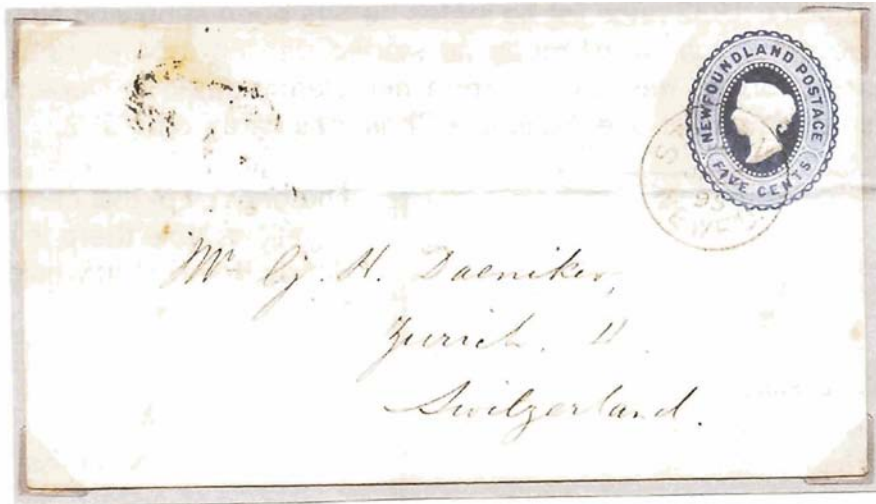 NEWFOUNDLAND POSTAGE
FIVE CENTS
95
Mr. G. H. Daeniker,
Zurich. II.
Switzerland.